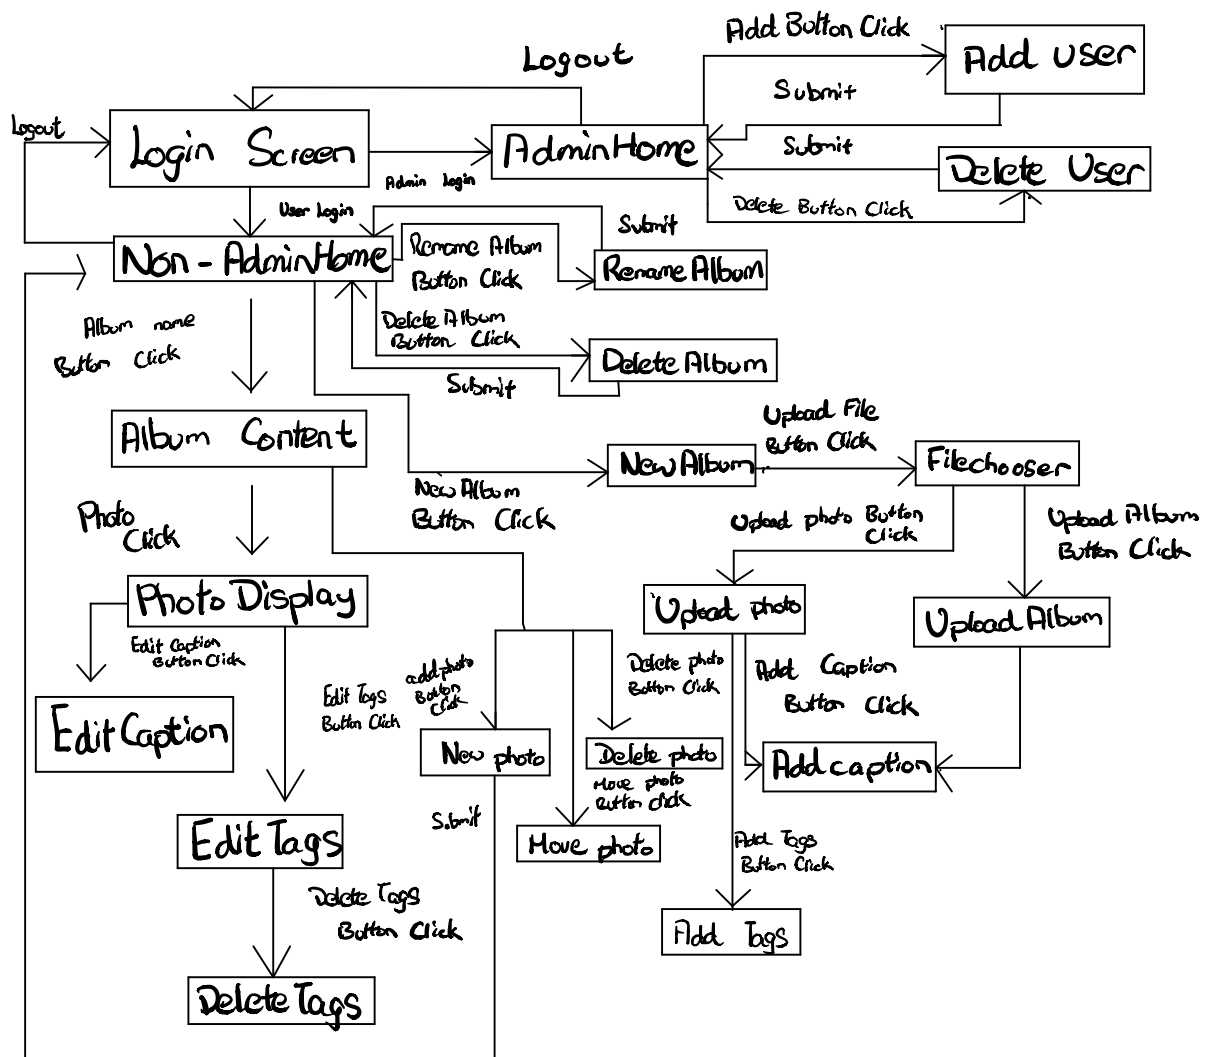 Add Button Click
Add User
Logout
Submit
Logout
Login Screen
Admin Home
Submit
Delete User
Admin Login
Delete Button Click
User Login
Submit
Non-Admin Home
Rename Album
Button Click
Rename Album
Album name
Button Click
Delete Album
Button Click
Delete Album
Submit
Album Content
Upload File
Button Click
New Album
Filechooser
New Album
Button Click
Photo
Click
Upload photo Button
Click
Upload Album
Button Click
Photo Display
Upload photo
Upload Album
Edit Caption
Button Click
add photo
Button
Click
Delete photo
Button Click
Add Caption
Button Click
Edit Tags
Button Click
Edit Caption
New photo
Delete photo
Add caption
Move photo
Button Click
Submit
Edit Tags
Move photo
Add Tags
Button Click
Delete Tags
Button Click
Add Tags
Delete Tags